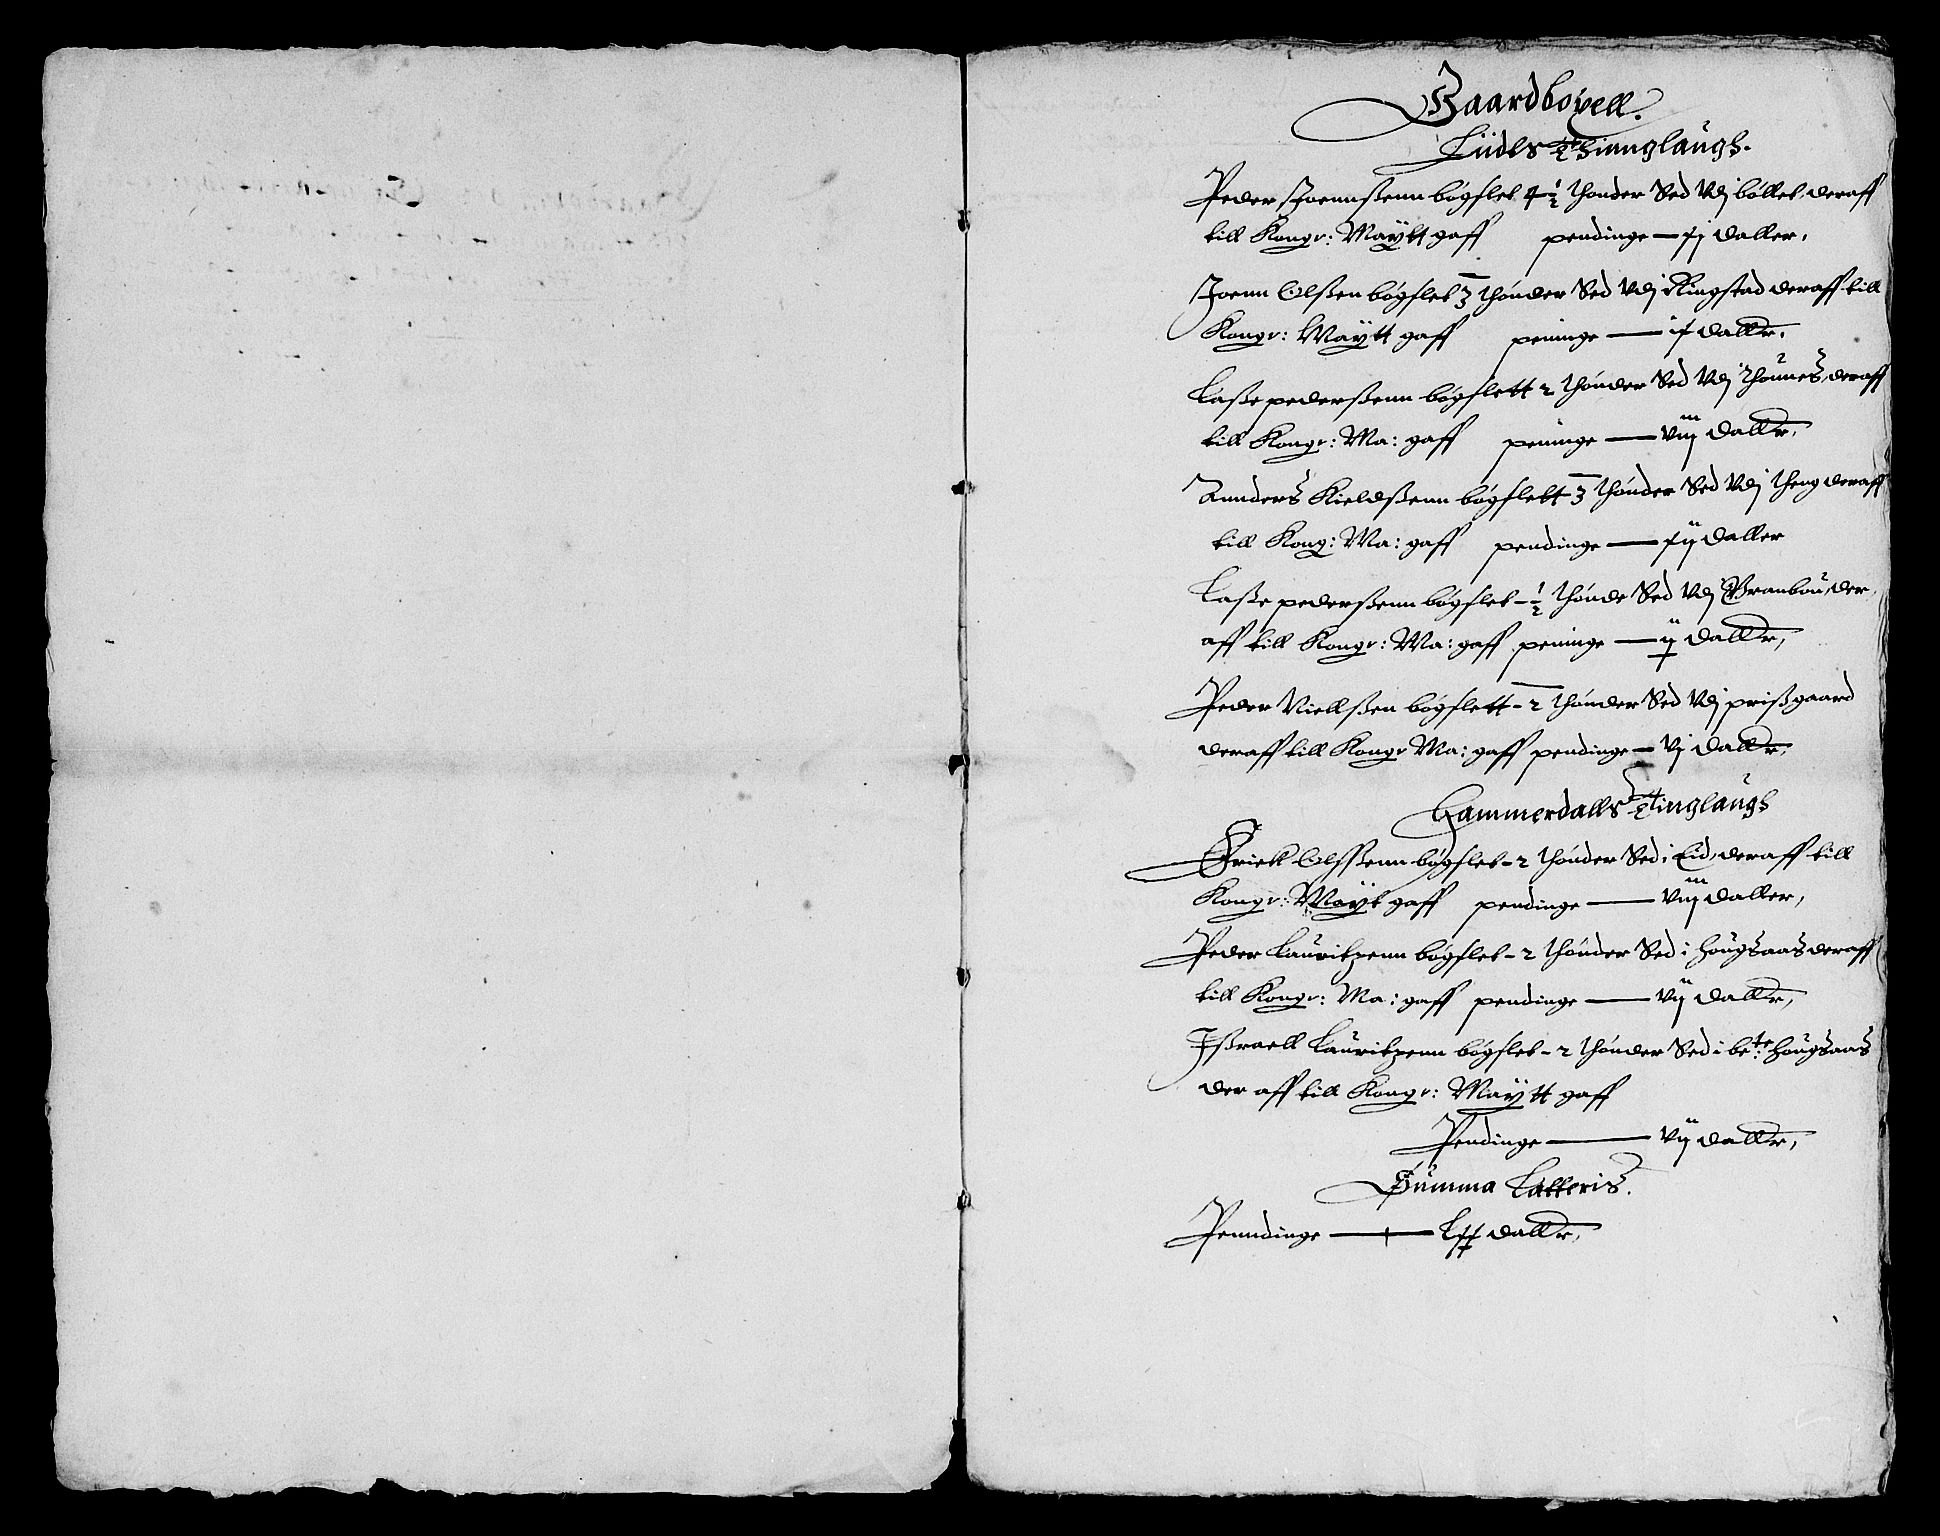 Gaardbøxell.
Liidts Thinnglaugh.
Peder Joennßenn bøgslet 4½ thønder Sed Vdj bøllet, deraff
till Kongr: Maÿtt gaff pendinge — xj daller,
Joenn Olßen bøgslet 3 thønder Sed Vdj Ringstad deraff till
Kongr: Maÿtt gaff peninge — ix dallr,
Laße pederßenn bøgslett 2 thønder Sed Vdj Thønnes, deraff
till Kongr: Ma: gaff peninge — viij dallr,
Annders Kieldßenn bøgslett 3 thønder Sed Vdj theng deraff
till Kong: Ma: gaff pendinge — xij daller
Laße pederßenn bøgslet – ½ thønde Sed Vdj Branbou, der
aff till Kongr: Ma: gaff peninge — ij dallr,
Peder Niellßen bøgslett – 2 thønder Sed Vdj prißgaard
deraff till Kongr Ma: gaff pendinge — vj dallr,
Hammerdalls Tinglaugh
Erick Olßenn bøgslet – 2 thønder Sed i Eid, deraff till
Kongr: Maÿt gaff pendinge — viij daller,
Peder Lauritzenn bøgslet – 2 thønder Sed i hougsaas deraff
till Kongr: Ma: gaff pendinge — vij dallr,
Ißraell Lauritzenn bøgslet – 2 thønder Sed i be:te hougsaas
der aff till Kongr: Maÿtt gaff
Pendinge — vij dallr,
Summa Latteris.
Penndinge — Lxx dallr,